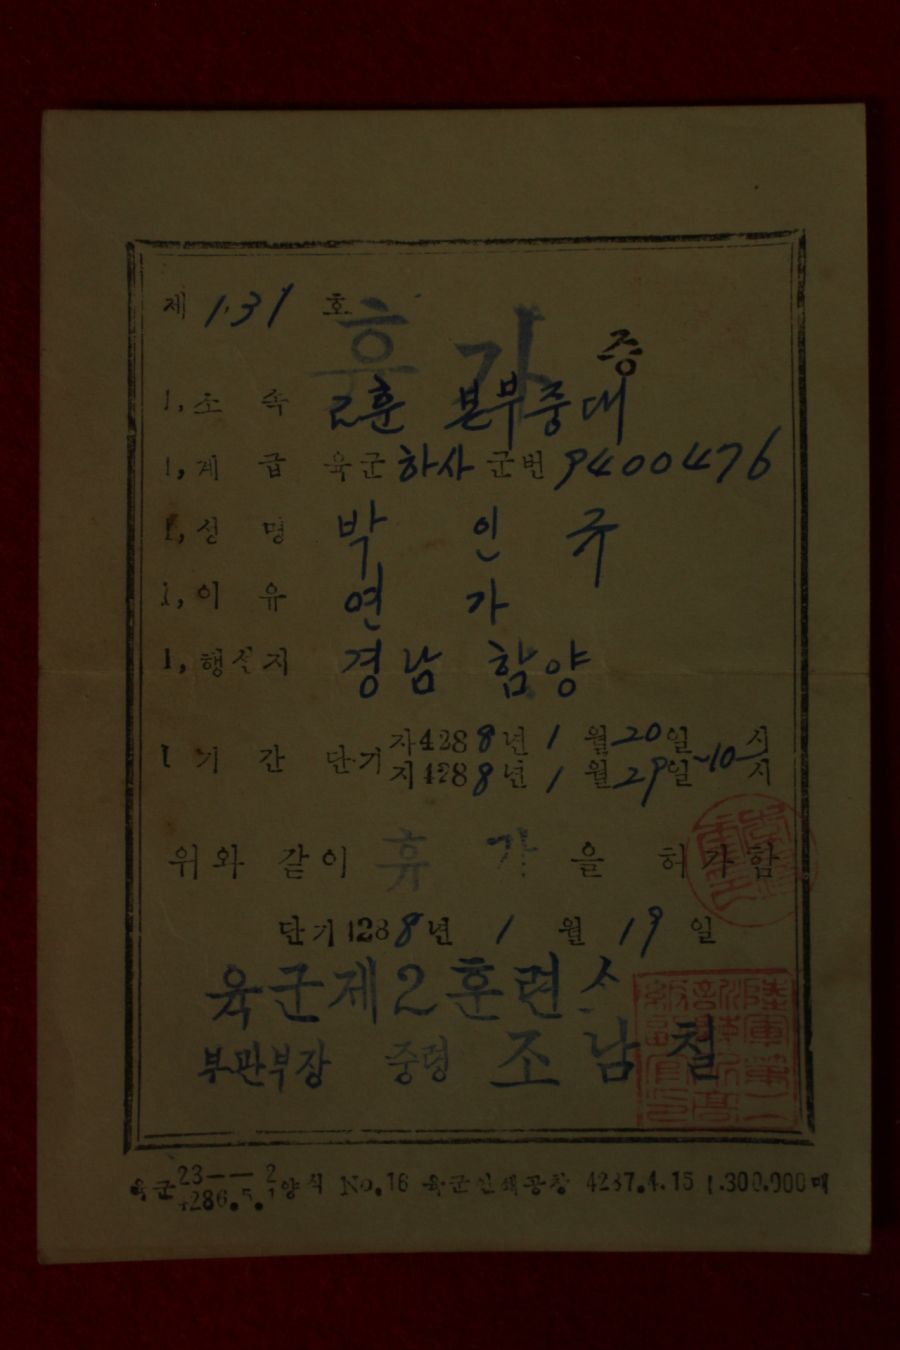 제 1.31 호
휴가 증
1, 소 속 2훈 본부중대
1, 계 급 육군 하사 군번 9400476
1, 성 명 박 인 규
1, 이 유 연 가
1, 행선지 경남 함양
1 기 간 단기 자4288년 1 월 20일 시
지4288년 1 월 29일 시
위와 같이 휴 가 을 허가함
단기4288년 1 월 19 일
육군제2훈련소
부관부장 중령 조남철
육군 23——2 양식 No.16 육군인쇄공창 4287.4.15 1.300.000매
4286.5.1